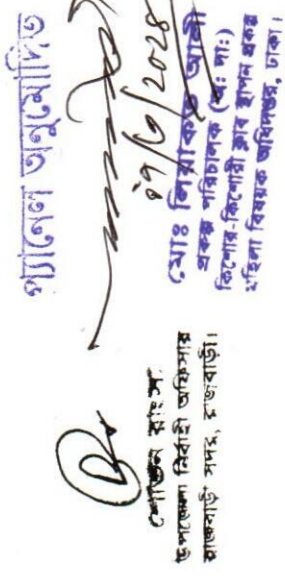 প্যানেল অনুমোদিত
০৭/৩/২০২৪
মোঃ লিয়াকত আলী
প্রকল্প পরিচালক (অঃ দাঃ)
কিশোর-কিশোরী ক্লাব স্থাপন প্রকল্প
মহিলা বিষয়ক অধিদপ্তর, ঢাকা।
উপজেলা নির্বাহী অফিসার
রাজবাড়ী সদর, রাজবাড়ী।